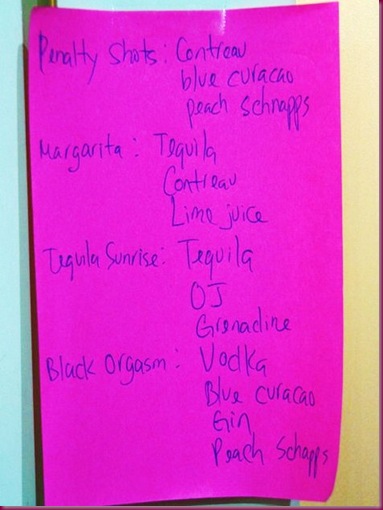 Penalty Shots: Contreau
blue curacao
peach schnapps
Margarita: Tequila
Contreau
Lime juice
Tequila Sunrise: Tequila
OJ
Grenadine
Black Orgasm: Vodka
Blue curacao
Gin
Peach Schapps